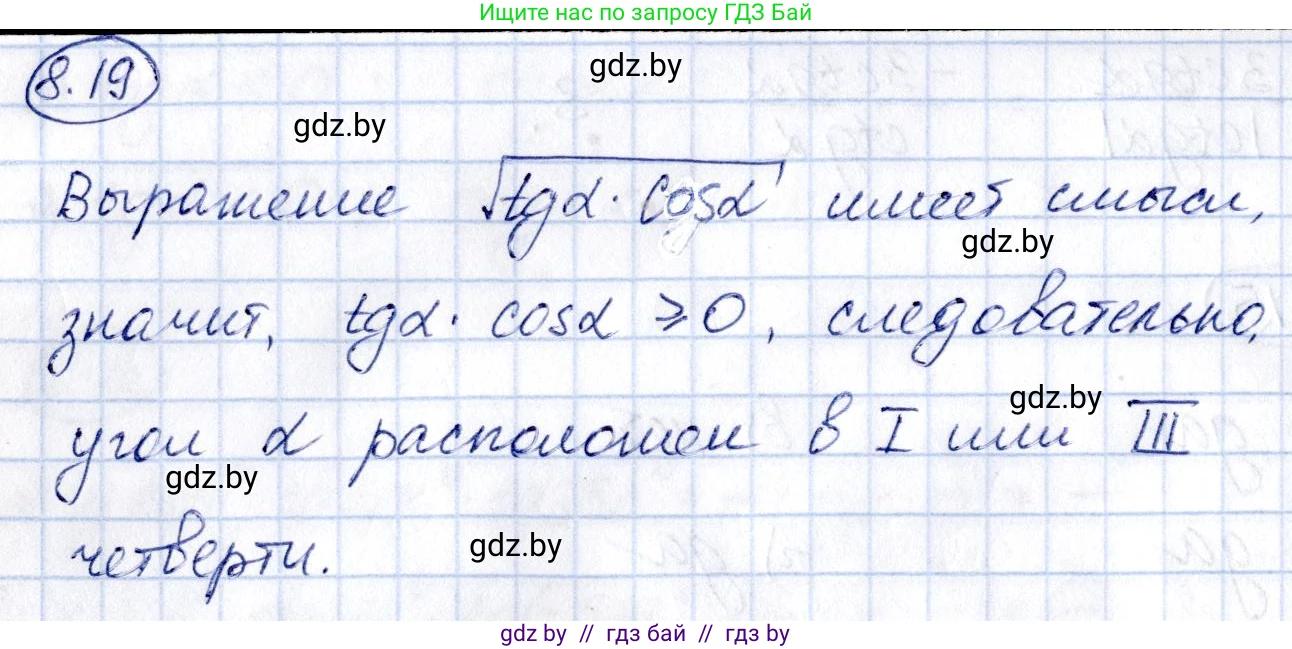 Ищите нас по запросу ГДЗ Бай
8.19
gdz.by
gdz.by
Выражение √tgα · cosα имеет смысл,
gdz.by
значит, tgα · cosα ⩾ 0, следовательно,
gdz.by
угол α расположен в I или III
gdz.by
четверти.
gdz.by
gdz by // гдз бай // гдз by